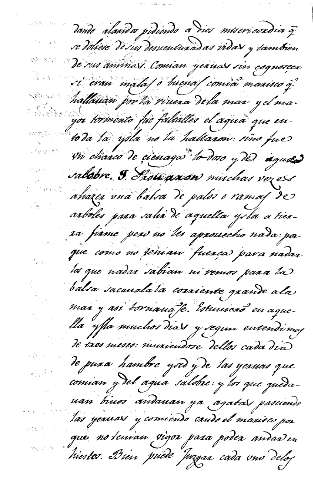 dando alaridos pidiendo a dios misericordia q̃
se doliese de sus desuenturadas vidas y tambien
de sus animas. Comian yeruas sin cognoscer
si eran malas o buenas comian marisco q̃
hallauan por la riuera de la mar y el ma-
yor tormento fue faltalles el agua que en
toda la ysla no la hallaron: sino fue
un charco de cienaga lodoso y de agua
salobre. Prouaron muchas vezes
ahazer vna balsa de palos o ramas de
arboles para salir de aquella ysla a tier-
ra firme pero no les aprouecho nada por
que como no tenian fuerça para nadar
los que nadar sabian ni remos para la
balsa sacauala la corriente grande a la
mar y asi tornauāse. Estuuierō en aque-
lla ysla muchos dias y segun entendimos
de tres meses muriendose dellos cada dia
de pura hambre y sed y de las yeruas que
comian y del agua salobre: y los que queda-
uan biuos andauan ya agatas paciendo
las yeruas y comiendo crudo el marisco por
que no tenian vigor para poder andar en
hiestos. Bien puede juzgar cada vno delos